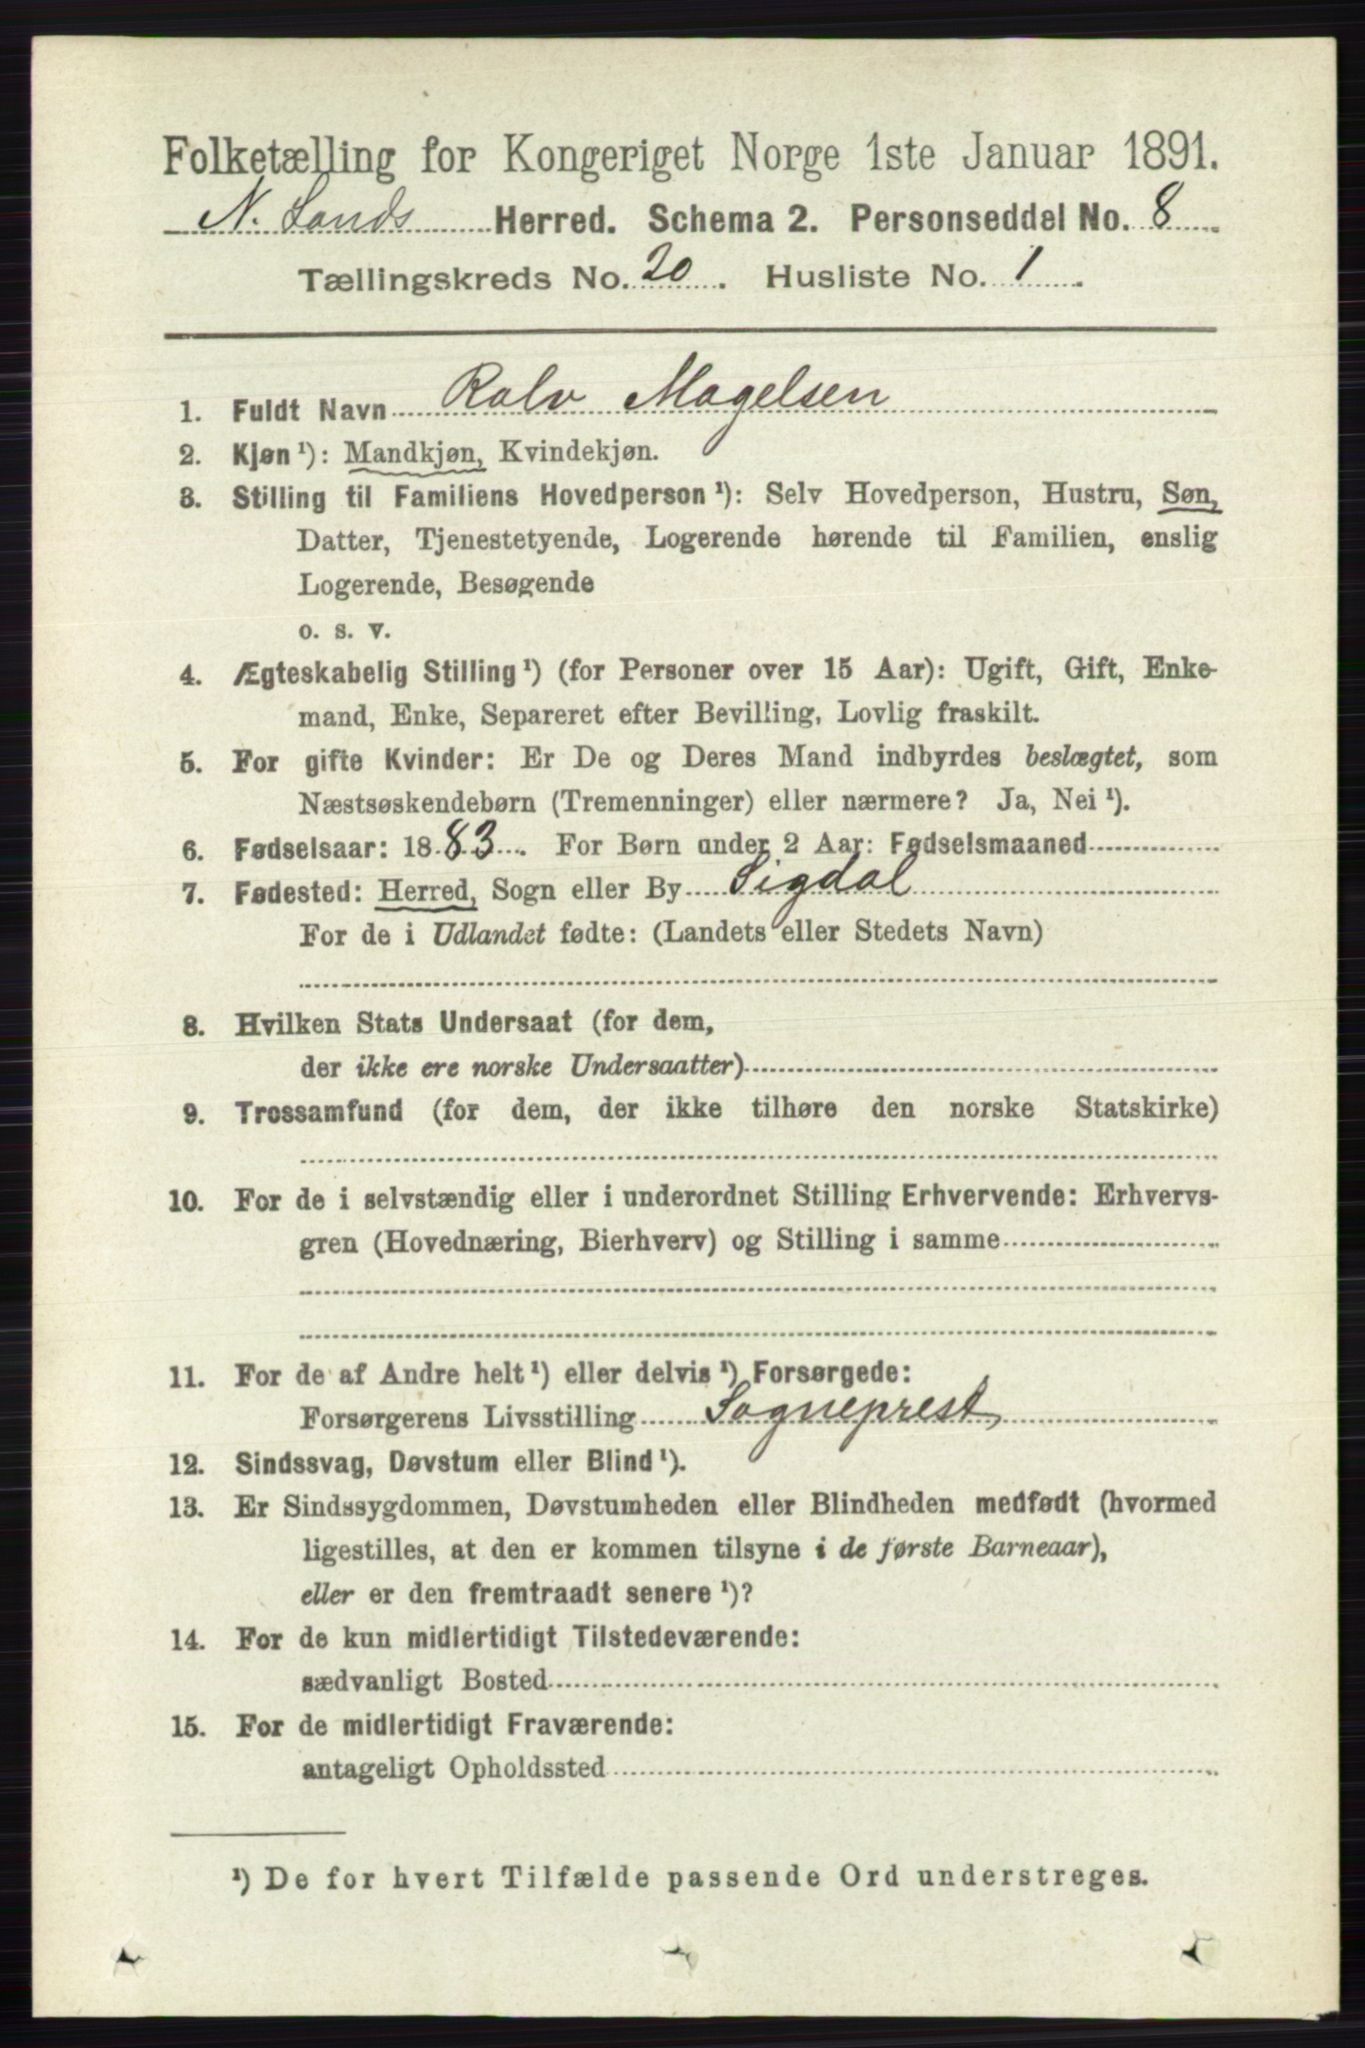 Folketælling for Kongeriget Norge 1ste Januar 1891.
N. Lands Herred. Schema 2. Personseddel No. 8
Tællingskreds No. 20. Husliste No. 1.
1. Fuldt Navn Rolv Magelsen
2. Kjøn ¹): Mandkjøn, Kvindekjøn.
3. Stilling til Familiens Hovedperson ¹): Selv Hovedperson, Hustru, Søn,
Datter, Tjenestetyende, Logerende hørende til Familien, enslig
Logerende, Besøgende
o. s. v.
4. Ægteskabelig Stilling ¹) (for Personer over 15 Aar): Ugift, Gift, Enke-
mand, Enke, Separeret efter Bevilling, Lovlig fraskilt.
5. For gifte Kvinder: Er De og Deres Mand indbyrdes beslægtet, som
Næstsøskendebørn (Tremenninger) eller nærmere? Ja, Nei ¹).
6. Fødselsaar: 1883. For Børn under 2 Aar: Fødselsmaaned
7. Fødested: Herred, Sogn eller By Sigdal
For de i Udlandet fødte: (Landets eller Stedets Navn)
8. Hvilken Stats Undersaat (for dem,
der ikke ere norske Undersaatter)
9. Trossamfund (for dem, der ikke tilhøre den norske Statskirke)
10. For de i selvstændig eller i underordnet Stilling Erhvervende: Erhvervs-
gren (Hovednæring, Bierhverv) og Stilling i samme
11. For de af Andre helt ¹) eller delvis ¹) Forsørgede:
Forsørgerens Livsstilling Sogneprest
12. Sindssvag, Døvstum eller Blind ¹).
13. Er Sindssygdommen, Døvstumheden eller Blindheden medfødt (hvormed
ligestilles, at den er kommen tilsyne i de første Barneaar),
eller er den fremtraadt senere ¹)?
14. For de kun midlertidigt Tilstedeværende:
sædvanligt Bosted
15. For de midlertidigt Fraværende:
antageligt Opholdssted
¹) De for hvert Tilfælde passende Ord understreges.